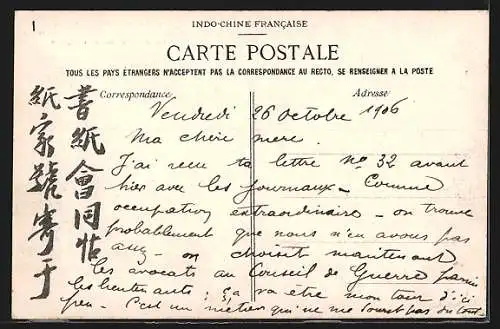 1
INDO-CHINE FRANÇAISE
CARTE POSTALE
TOUS LES PAYS ÉTRANGERS N'ACCEPTENT PAS LA CORRESPONDANCE AU RECTO, SE RENSEIGNER A LA POSTE
Correspondance Adresse
Vendredi 26 Octobre 1906
Ma chère mère.
J'ai recu ta lettre no 32 avant
hier avec les journaux - Comme
occupation extraordinaire - on trouve
probablement que nous n'en avons pas
on choisit maintenant
les avocats au Conseil de Guerre parmi
les lieutenants; ça va être mon tour d'ici
peu - C'est un métier qui ne me sourit pas du tout
書紙會同帖
紙家號寄于